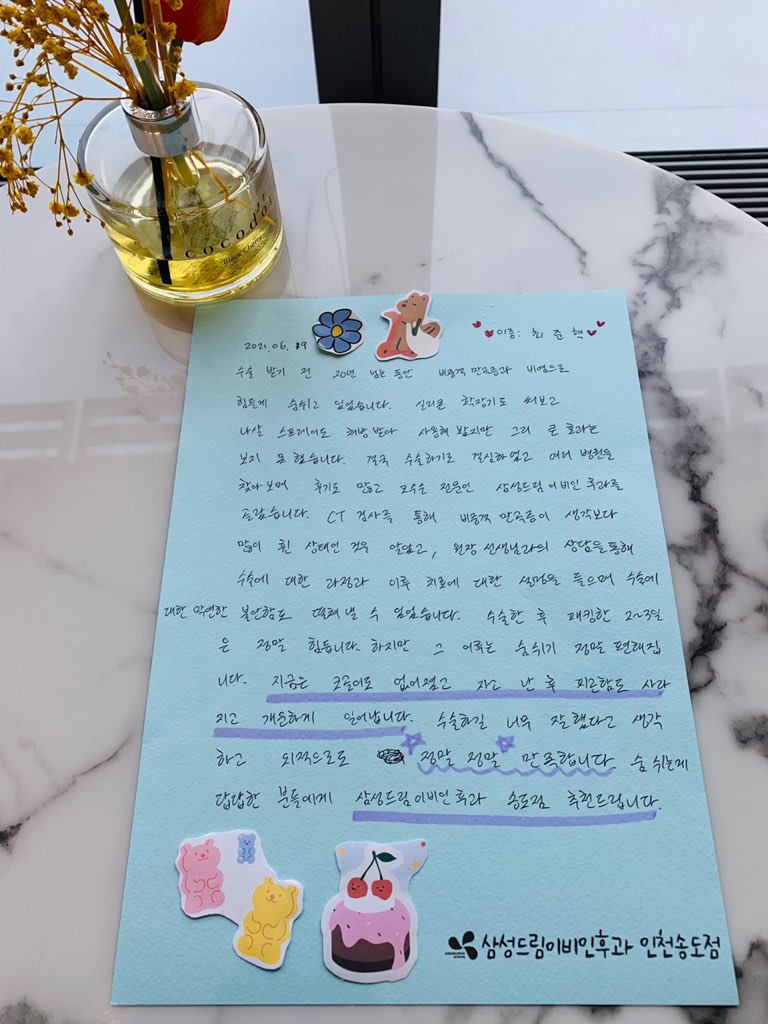 cocodor
Black Cherry
2021.06.19
이름: 최준혁
수술 받기 전 20년 넘는 동안 비중격 만곡증과 비염으로
힘들게 숨쉬고 있었습니다. 실리콘 확장기도 써보고
나살 스프레이도 처방 받아 사용해 봤지만 그리 큰 효과는
보지 못 했습니다. 결국 수술하기로 결심하였고 여러 병원을
찾아보며 후기도 많고 코수술 전문인 삼성드림이비인후과를
골랐습니다. CT 검사를 통해 비중격 만곡증이 생각보다
많이 휜 상태인 것을 알았고, 원장 선생님과의 상담을 통해
수술에 대한 과정과 이후 치료에 대한 설명을 들으며 수술에
대한 막연한 불안함도 떨쳐 낼 수 있었습니다. 수술한 후 패킹한 2~3일
은 정말 힘듭니다. 하지만 그 이후는 숨쉬기 정말 편해집
니다. 지금은 코골이도 없어졌고 자고 난 후 피곤함도 사라
지고 개운하게 일어납니다. 수술하길 너무 잘했다고 생각
하고 외적으로도 정말 정말 만족합니다. 숨 쉬는게
답답한 분들에게 삼성드림이비인후과 송도점 추천드립니다.
삼성드림이비인후과 인천송도점